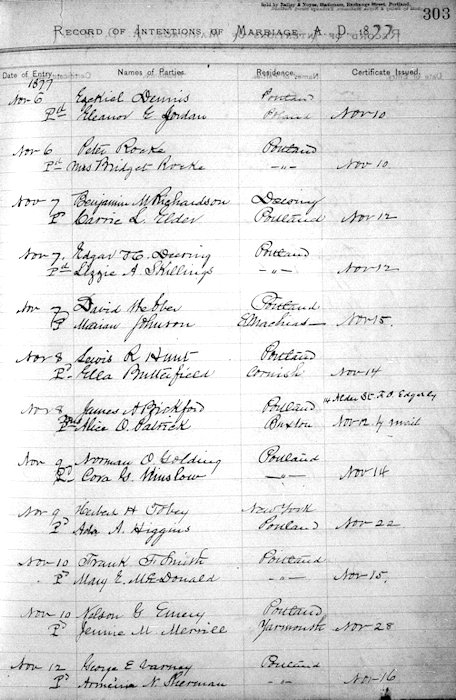 Sold by Bailey & Noyes, Stationers, Exchange Street, Portland.
303
RECORD OF INTENTIONS OF MARRIAGE, A. D. 1877
Date of Entry. Names of Parties. Residence. Certificate Issued.
1877
Nov 6 Ezekiel Dennis Portland
Pd Eleanor E Jordan Nov 10
Nov 6 Peter Rocke Portland
Pd Mrs Bridget Rocke -"- Nov 10
Nov 7 Benjamin M Richardson
P Carrie L. Elder Portland Nov 12
Nov 7. Edgar H. Deering Portland
Pd Lizzie A. Skillings -"- Nov 12
Nov 7 David Webber Portland
P Marian Johnson E Machias Nov 15.
Nov 8 Lewis R Hunt Portland
Pd Ella Butterfield Cornish Nov 14
Nov 8 James A Bickford Portland 14 Alder St
Pd Mrs Alice O. Patrick Buxton Nov 12 by mail
Nov 9 Norman O Golding Portland
Pd Cora G. Winslow -"- Nov 14
Nov 9 Herbert H Tobey New York
Pd Ada A. Higgins Portland Nov 22
Nov 10 Frank F. Smith Portland
Pd Mary E. McDonald -"- Nov 15.
Nov 10 Nelson G Emery Portland
Pd Jennie M Merrill Yarmouth Nov 28
Nov 12 George E Varney Portland
Pd N. Sherman -"- Nov 16